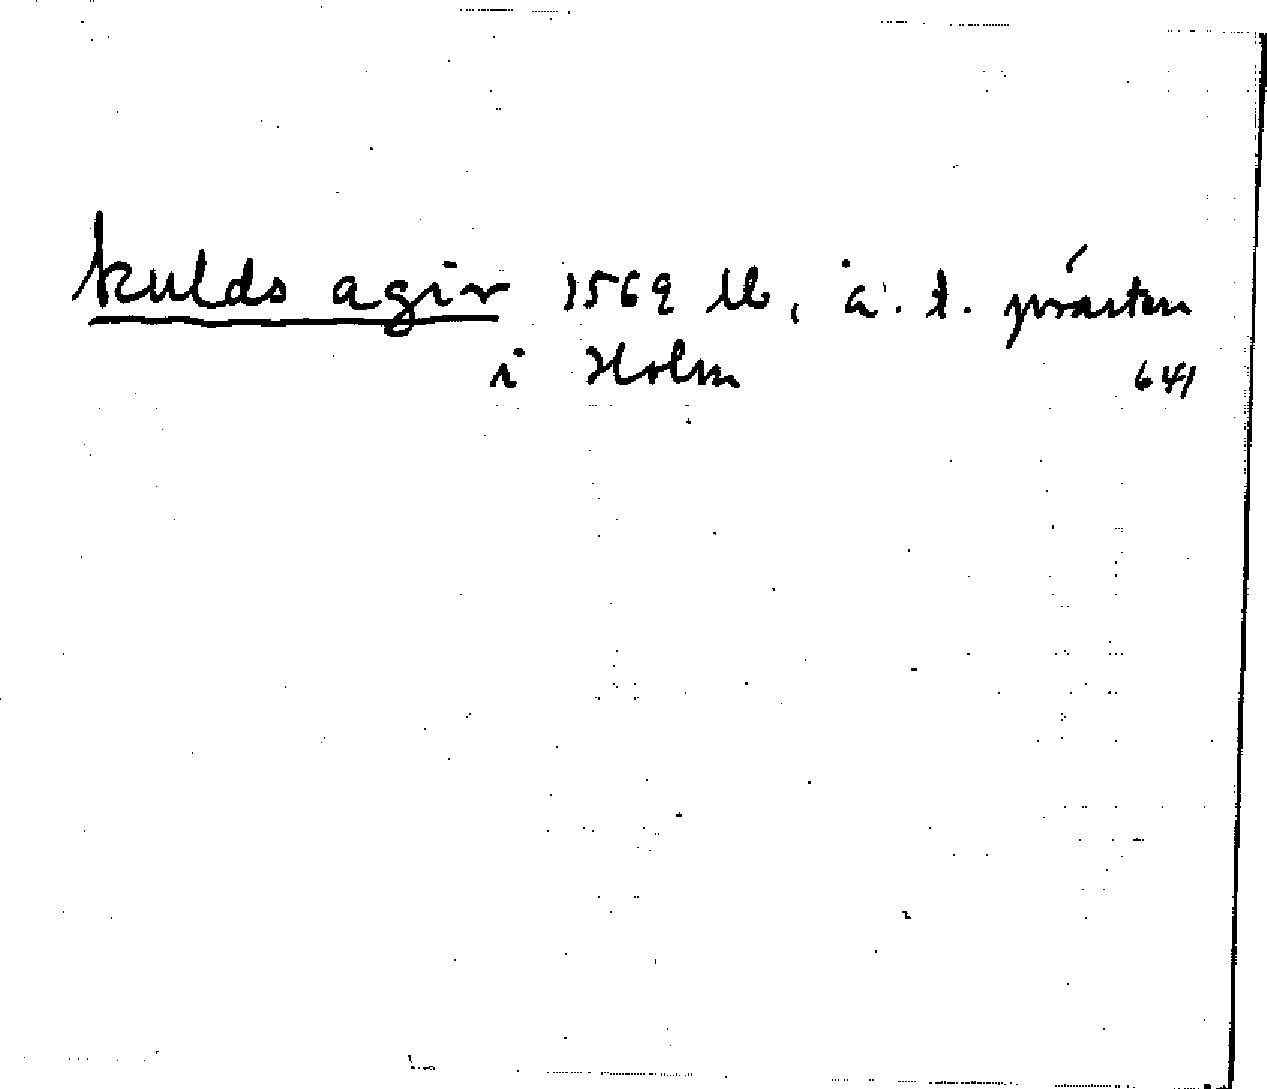 kulds agir 1569 lb, å. t. prästen
i Holm 641